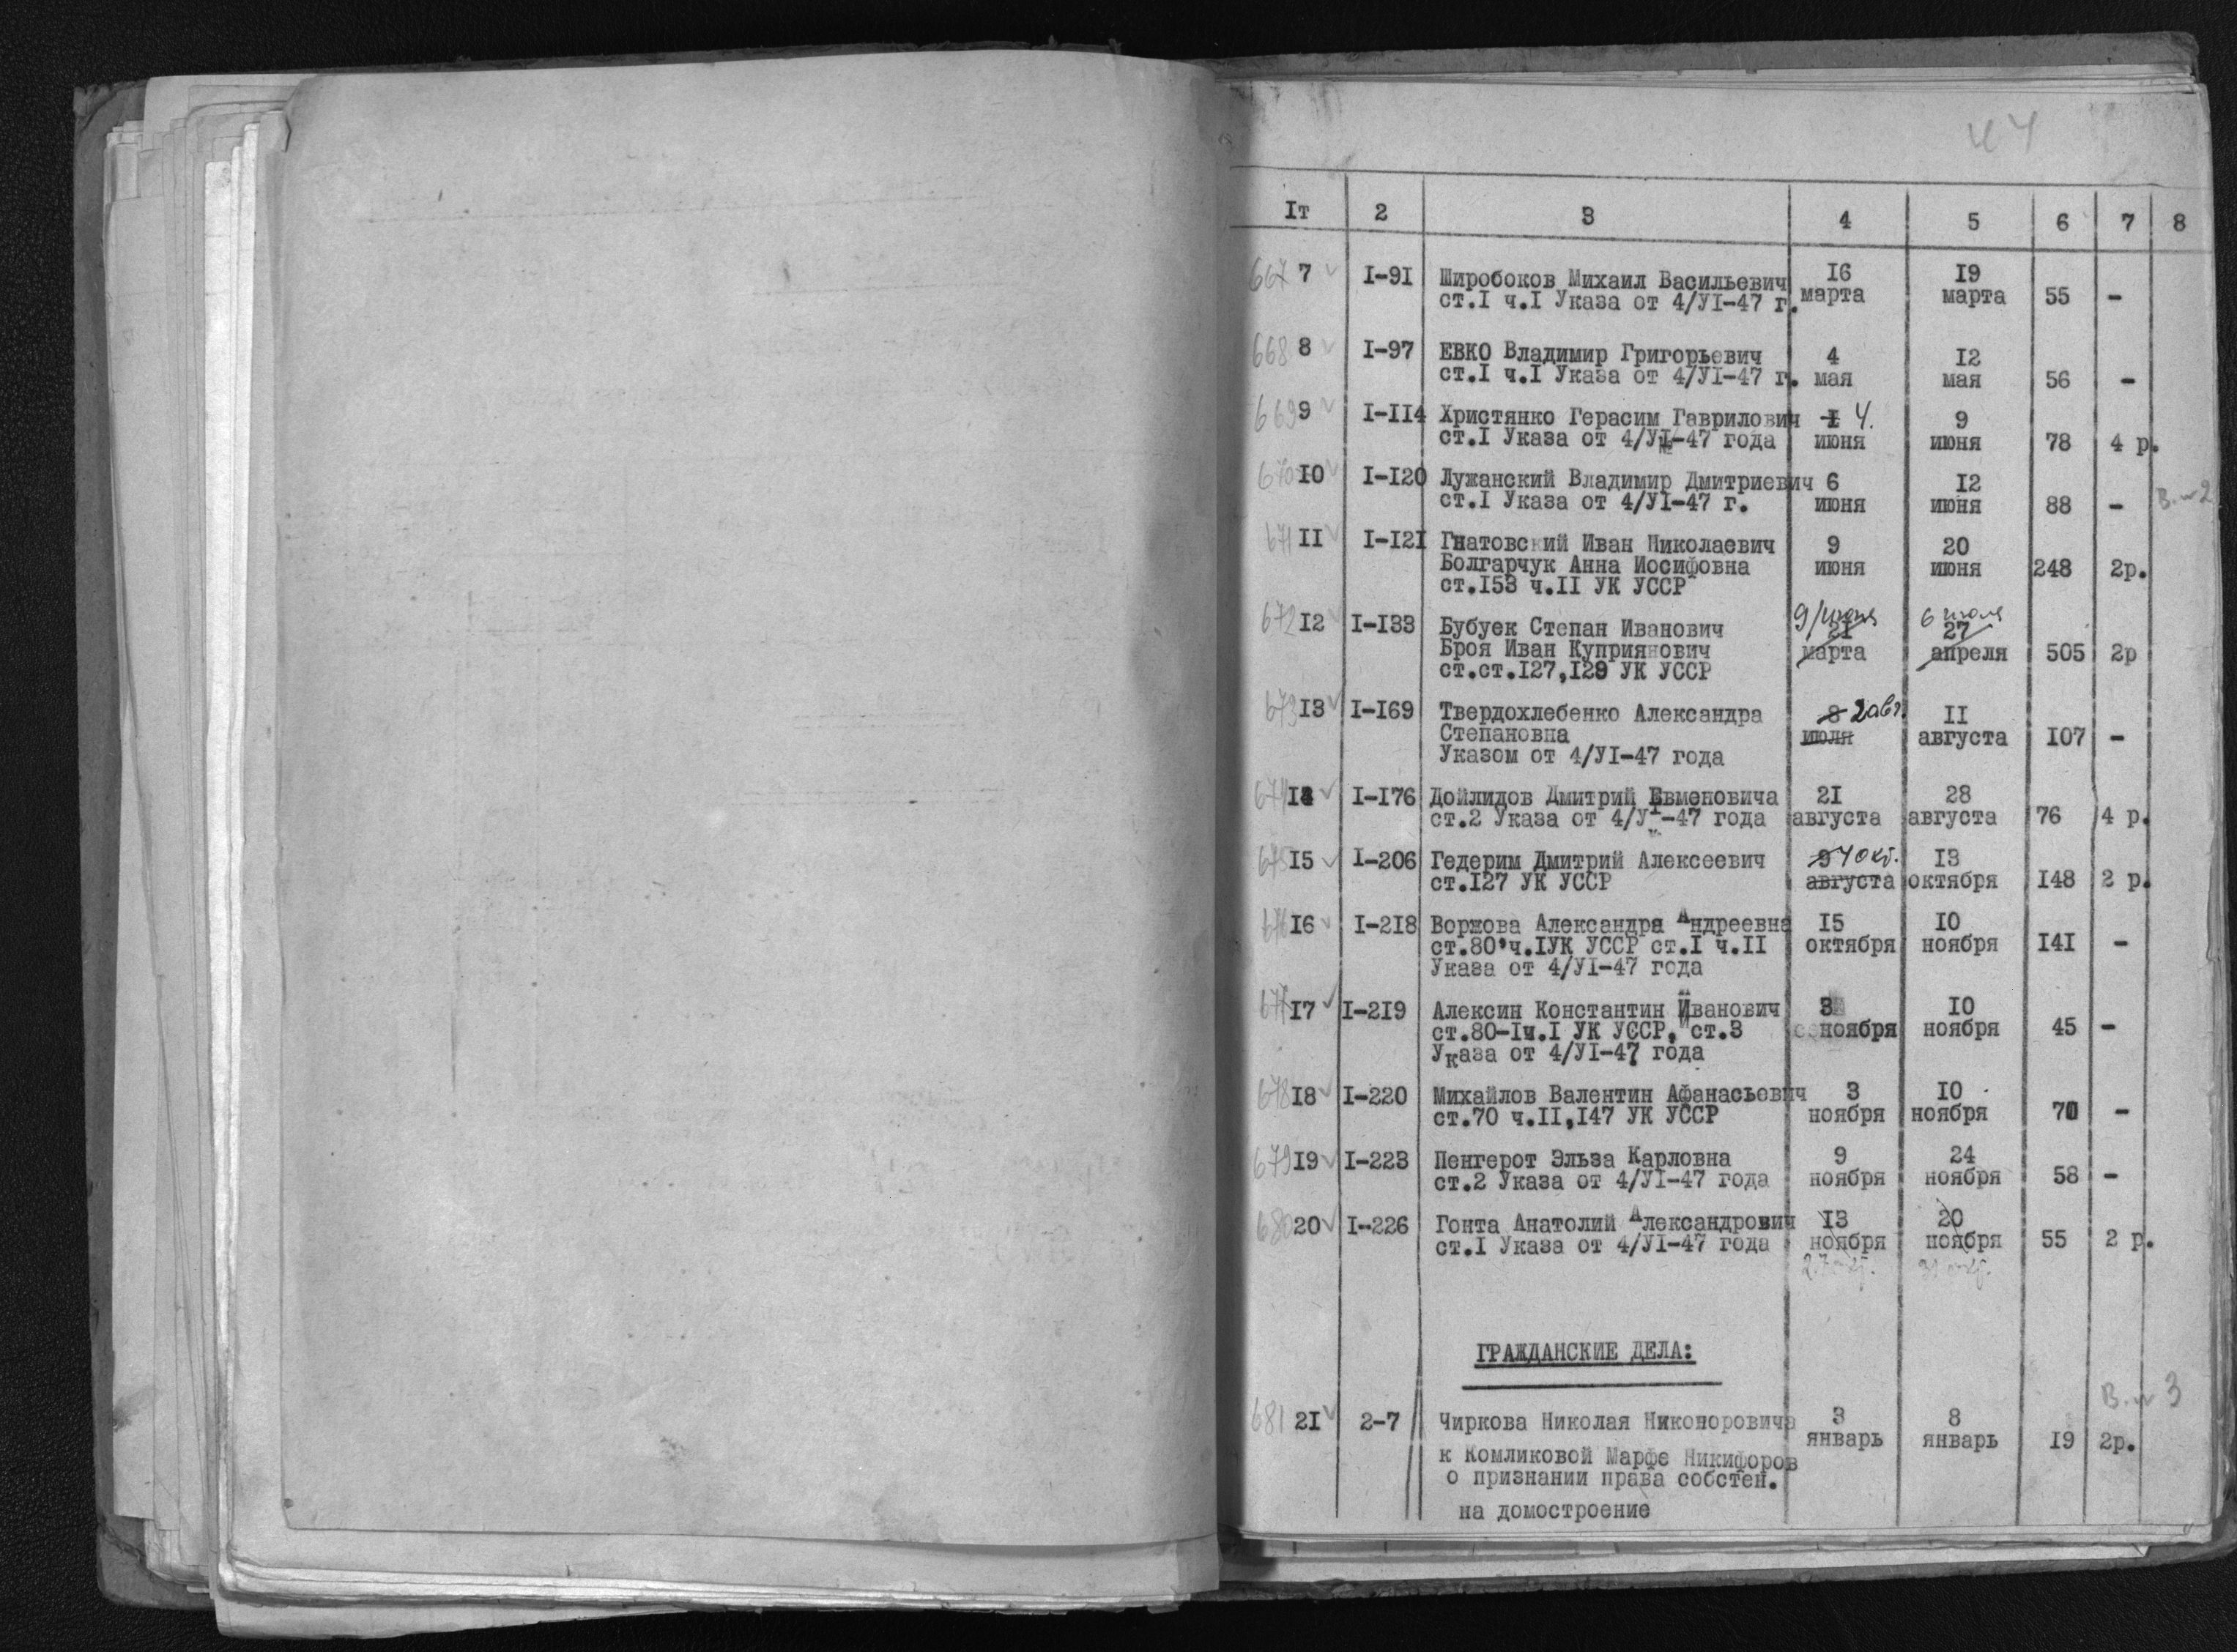 44
Iт 2 3 4 5 6 7 8
667 7 I-9I Широбоков Михаил Васильевич 16 19
ст.I ч.I Указа от 4/УI-47 г. марта марта 55 -
668 8 I-97 ЕВКО Владимир Григорьевич 4 I2
ст.I ч.I Указа от 4/УI-47 г. мая мая 56 -
669 9 I-II4 Христянко Герасим Гаврилович I 4. 9
ст.I Указа от 4/УI-47 года июня июня 78 4 р.
670 IO I-I20 Лужанский Владимир Дмитриевич 6 I2
ст.I Указа от 4/УI-47 г. июня июня 88 - 
671 II I-I2I Гнатовский Иван Николаевич 9 20
Болгарчук Анна Иосифовна июня июня 248 2р.
ст.I53 ч.II УК УССР
672 I2 I-I33 Бубуек Степан Иванович 9/июня 21 6 июля 27
Броя Иван Куприянович марта апреля 505 2р
ст.ст.I27,I29 УК УССР
673 I3 I-I69 Твердохлебенко Александра 8 2 авг. II
Степановна июля августа I07 -
Указом от 4/УI-47 года
674 I4 I-I76 Дойлидов Дмитрий Евменовича 2I 28
ст.2 Указа от 4/УI-47 года августа августа 76 4 р.
675 I5 I-206 Гедерим Дмитрий Алексеевич 9 4 окт. I3
ст.I27 УК УССР августа октября I48 2 р.
676 I6 I-2I8 Воржова Александра Андреевна I5 IO
ст.80 ч.IУК УССР ст.I ч.II октября ноября I4I -
Указа от 4/УI-47 года
677 I7 I-2I9 Алексин Константин Иванович 3 IO
ст.80-Iч.I УК УССР, ст.3 ноября ноября 45 -
Указа от 4/УI-47 года
678 I8 I-220 Михайлов Валентин Афанасьевич 3 IO
ст.70 ч.II,I47 УК УССР ноября ноября 70 -
679 I9 I-223 Пенгерот Эльза Карловна 9 24
ст.2 Указа от 4/УI-47 года ноября ноября 58 -
680 20 I-226 Гонта Анатолий Александрович I3 20
ст.I Указа от 4/УI-47 года ноября ноября 55 2 р.
ГРАЖДАНСКИЕ ДЕЛА:
681 2I 2-7 Чиркова Николая Никоноровича 3 8
январь январь I9 2р.
к Комликовой Марфе Никифоров
о признании права собстен.
на домостроение